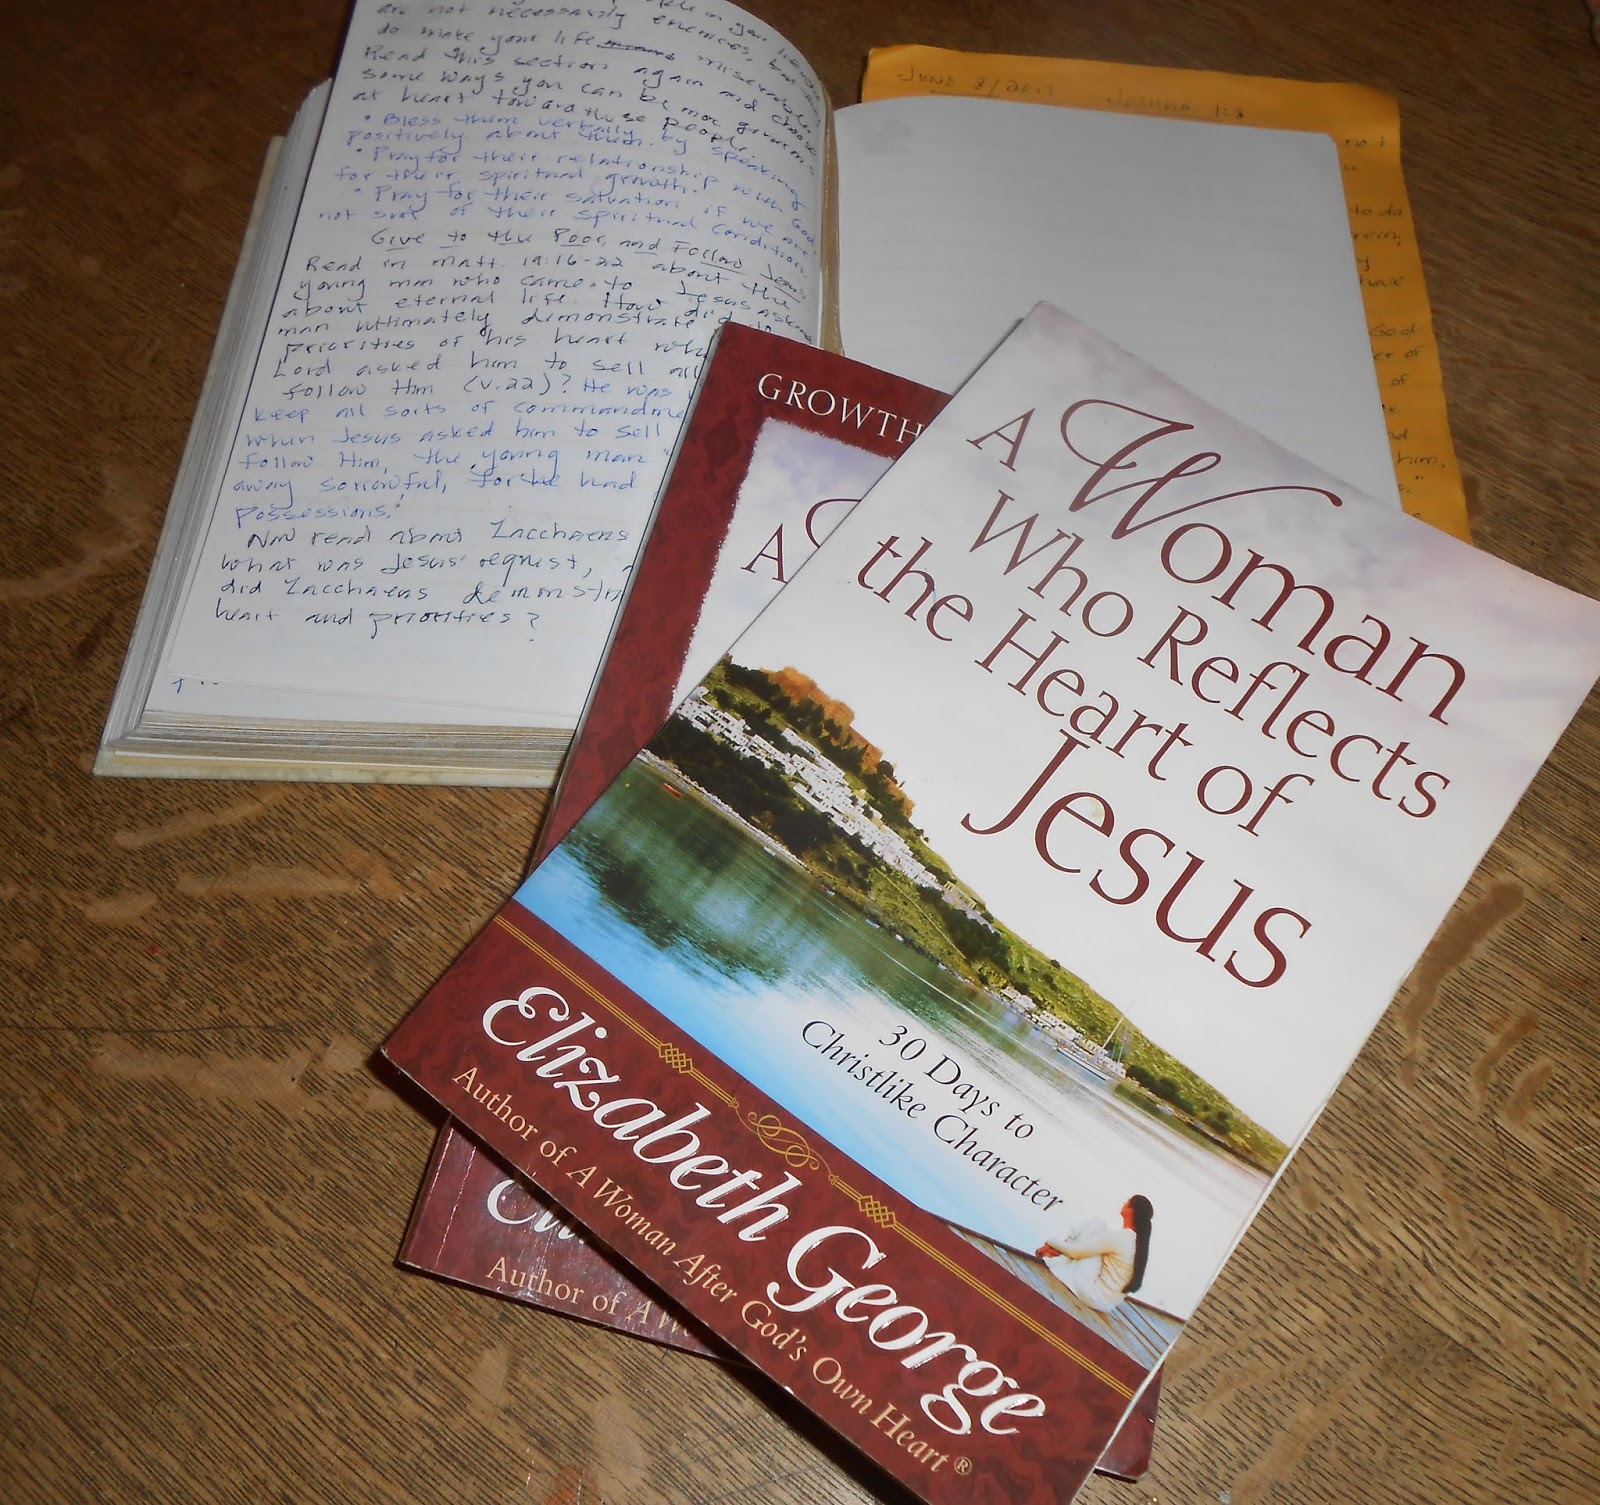 are not necessarily enemies, but
do make your life miserable.
Read this section again and choose
some ways you can be more generous
at heart toward those people.
• Bless them verbally by speaking
positively about them.
• Pray for their relationship with God,
for their spiritual growth.
• Pray for their situation if we are
not sure of their spiritual condition.
Give to the Poor, and Follow Jesus
Read in Matt. 19:16-22 about the
young man who came to Jesus asking
about eternal life. How did
man ultimately demonstrate
priorities of his heart
Lord asked him to sell all
follow Him (v.22)? He was
keep all sorts of
when Jesus asked him to sell
follow Him, the young man
away sorrowful, for he had
possessions."
Now read about Zacchaeus
What was Jesus' request,
did Zacchaeus
heart and priorities?
June 8/2017 Joshua 1:8
not
to do
have
God
of
of
and
him,
GROWTH
A
Author of A
A Woman
Who Reflects
the Heart of
Jesus
30 Days to
Christlike Character
Elizabeth George
Author of A Woman After God's Own Heart®